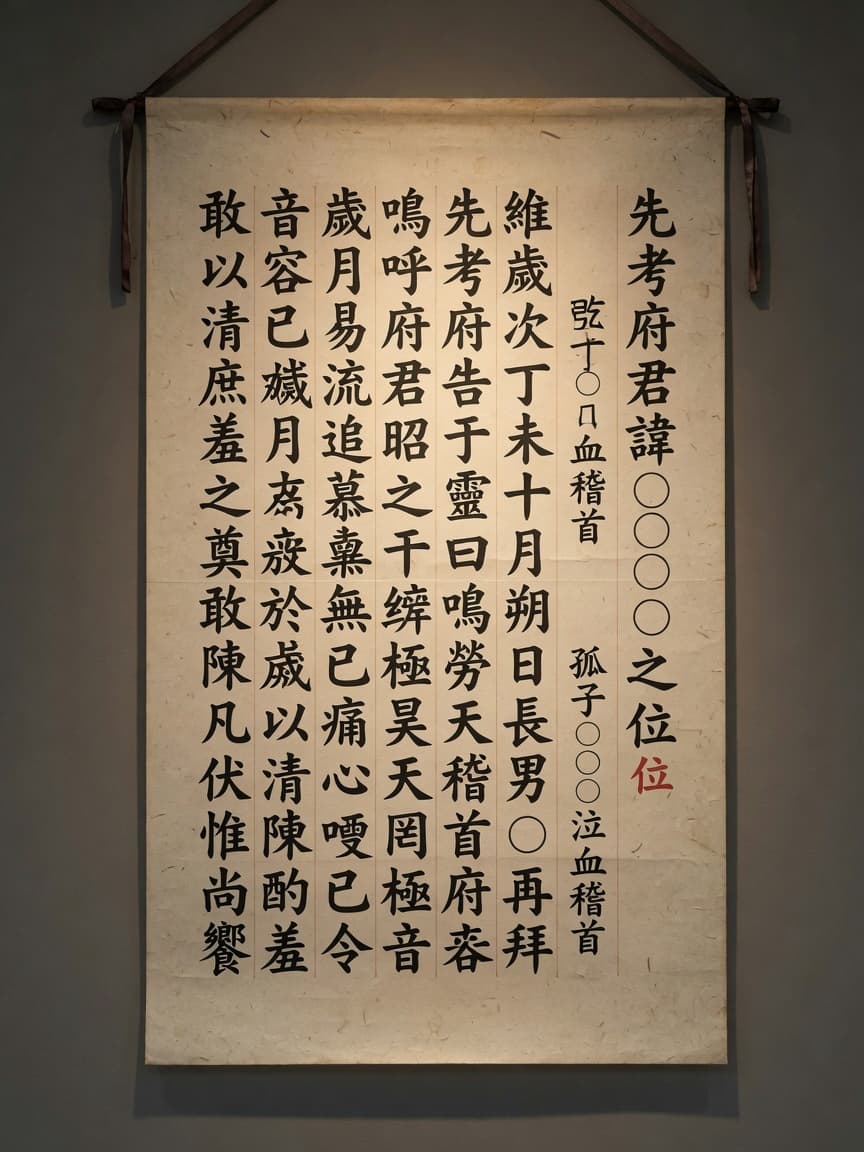 先考府君諱〇〇〇〇之位位
十〇血稽首 孤子〇〇〇泣血稽首
維歲次丁未十月朔日長男〇再拜
先考府告于靈曰鳴勞天稽首府
鳴呼府君昭之干極昊天罔極音
歲月易流追慕無已痛心已令
音容已月於以清陳酌羞
敢以清庶羞之奠敢陳凡伏惟尚饗